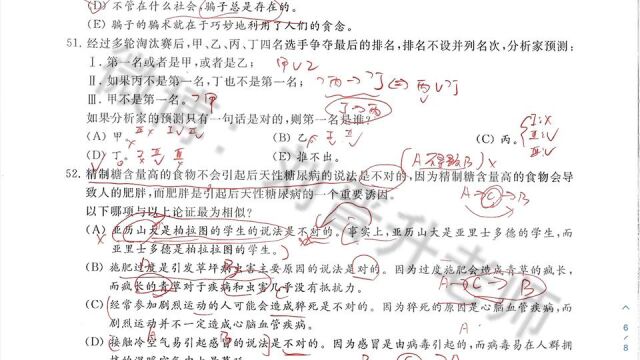 (D) 不管在什么社会,骗子总是存在的。
(E) 骗子的骗术就在于巧妙地利用了人们的贪念。
51. 经过多轮淘汰赛后,甲、乙、丙、丁四名选手争夺最后的排名,排名不设并列名次,分析家预测:
Ⅰ. 第一名或者是甲,或者是乙; 甲∨乙
Ⅱ. 如果丙不是第一名,丁也不是第一名; ¬丙→¬丁⇔丙∨¬丁
Ⅲ. 甲不是第一名。 ¬甲 丁→丙
如果分析家的预测只有一句话是对的,则第一名是谁?
(A) 甲。 (B) 乙。 (C) 丙。
(D) 丁。 (E) 推不出。
52. 精制糖含量高的食物不会引起后天性糖尿病的说法是不对的,因为精制糖含量高的食物会导
致人的肥胖,而肥胖是引起后天性糖尿病的一个重要诱因。 A→C→B
以下哪项与以上论证最为相似?
(A) 亚历山大是柏拉图的学生的说法是不对的。事实上,亚历山大是亚里士多德的学生,而
亚里士多德是柏拉图的学生。
(B) 施肥过度是引发草坪病虫害主要原因的说法是对的。因为过度施肥会造成青草的疯长,
而疯长的青草对于疾病和虫害几乎没有抵抗力。 A→C→B
(C) 经常参加剧烈运动的人可能会造成猝死是不对的。因为猝死的原因是心脑血管疾病,而
剧烈运动并不一定造成心脑血管疾病。
(D) 接触冷空气易引起感冒的说法是不对的。因为感冒是由病毒引起的,而病毒易在人群拥
微博:刘晋升老师
6/8